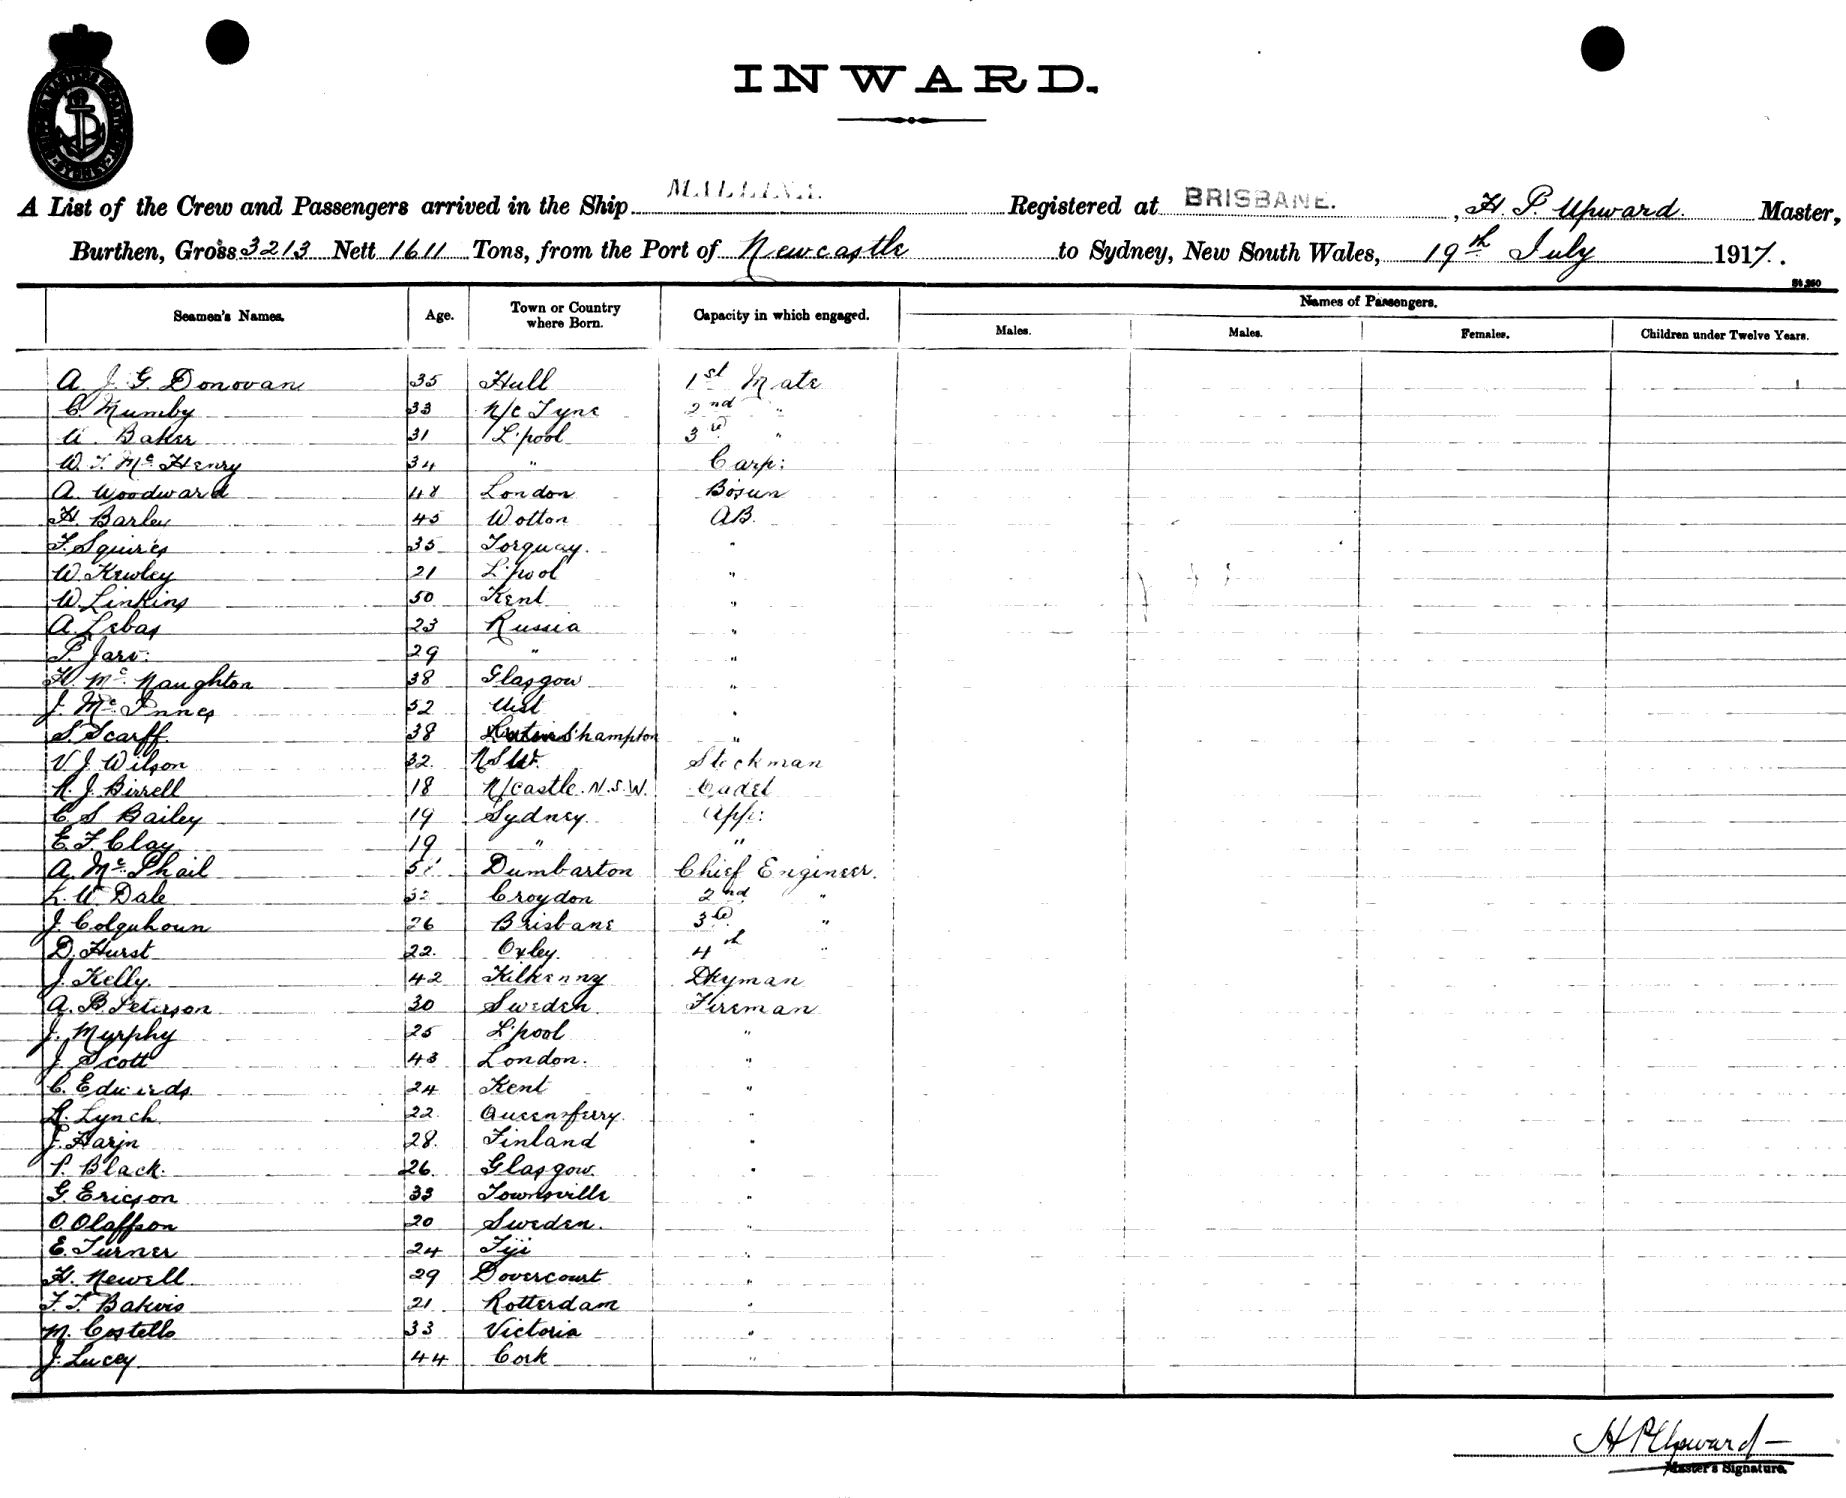 INWARD.
A List of the Crew and Passengers arrived in the Ship MALLINA. Registered at BRISBANE. , H. P. Upward. Master,
Burthen, Gross 3213 Nett 1611 Tons, from the Port of Newcastle to Sydney, New South Wales, 19th July 1917.
Seamen's Names. Age. Town or Country where Born. Capacity in which engaged. Names of Passengers.
Males. Males. Females. Children under Twelve Years.
A. J. G. Donovan 35 Hull 1st Mate
C. Mumby 33 N/c Tyne 2nd "
A. Baker 31 L'pool 3rd "
W. T. McHenry 34 " Carp:
A. Woodward 48 London Bosun
H. Barley 45 Wotton AB.
F. Squires 35 Torquay. "
W. Kewley 21 L'pool "
W. Linkins 50 Kent "
A. Lebas 23 Russia "
P. Jarv: 29 " "
H. McNaughton 38 Glasgow "
J. McInnes 52 Uist "
S. Scarff. 38 "
V. J. Wilson 32. NSW. Stockman
R. J. Birrell 18 N/castle. N.S.W. Cadet
C S Bailey 19 Sydney App:
E. F. Clay 19 " "
A. McPhail Dumbarton Chief Engineer.
L. W. Dale Croydon 2nd "
J. Colquhoun 26 Brisbane 3rd "
D. Hurst 22. Oxley 4th "
J. Kelly. 42 Kilkenny Dkyman
A. B. Peterson 30 Sweden. Fireman
J. Murphy 25 L'pool "
J. Scott 43 London. "
C. Edwards 24 Kent "
R. Lynch 22. Queensferry. "
J. Harjn 28. Finland "
P. Black. 26. Glasgow. "
G. Ericson 33 Townsville "
O. Olaffson 20 Sweden. "
E. Turner 24 Fiji "
H. Newell 29 Dovercourt "
F. T. Bakvis 21 Rotterdam "
M. Costello 33 Victoria "
J. Lucey 44 Cork "
H P Upward
Master's Signature.